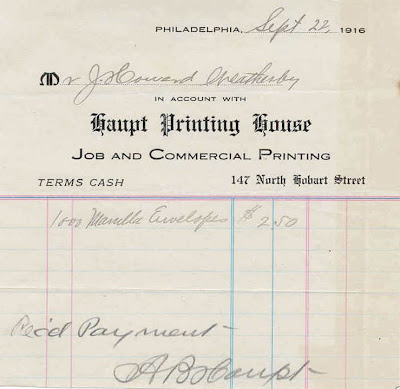 PHILADELPHIA, Sept 22, 1916
Mr J. Howard Weatherby
IN ACCOUNT WITH
Haupt Printing House
JOB AND COMMERCIAL PRINTING
TERMS CASH 147 North Hobart Street
1000 Manilla Envelopes $ 2.50
Rec'd Payment
A B Haupt